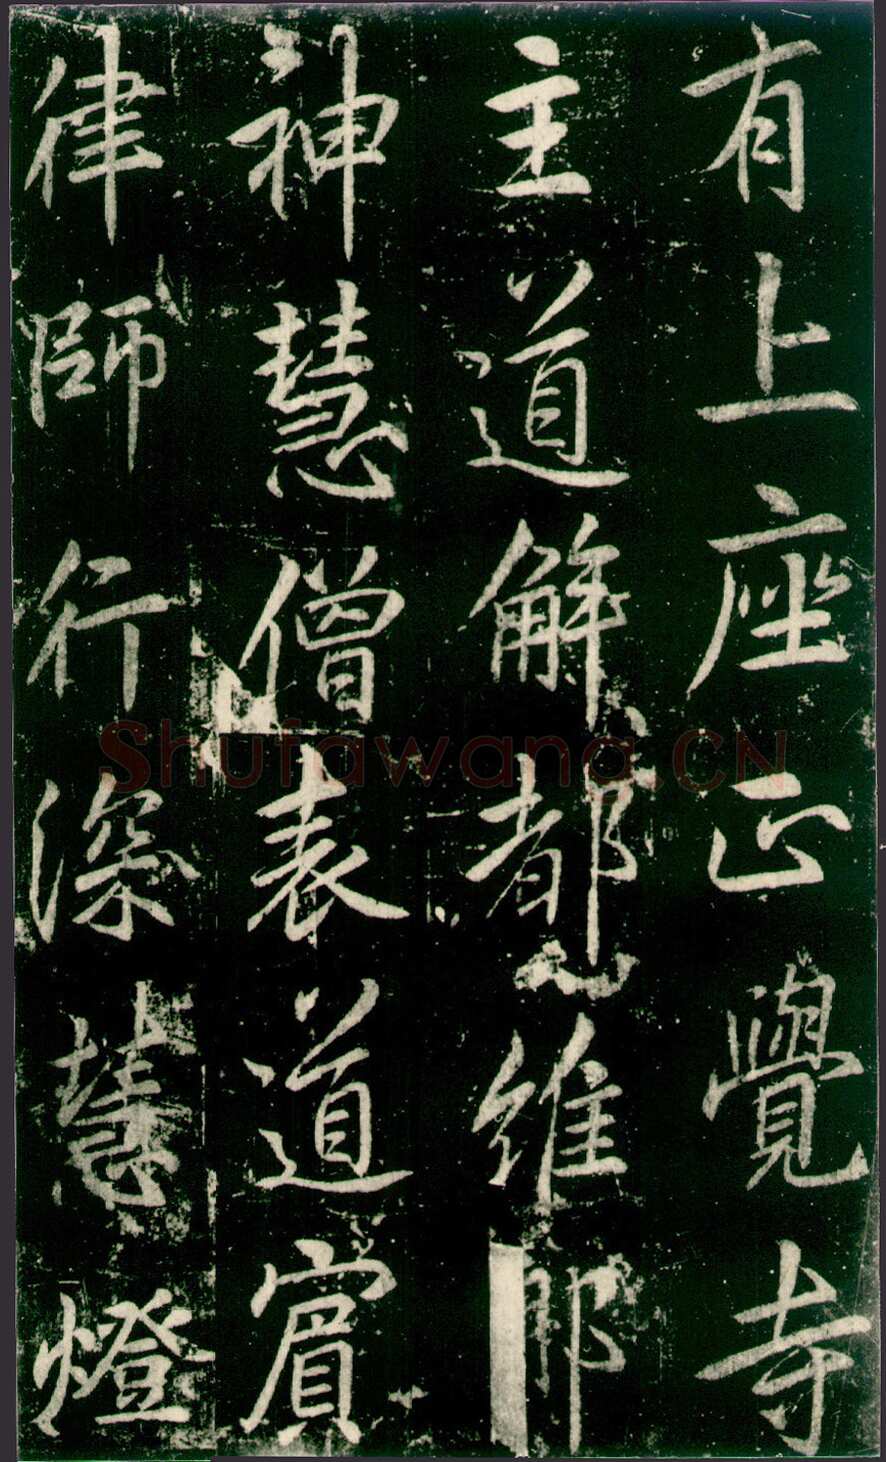 有上座正覺寺
主道解都維那
神慧僧表道賓
律師行深慧燈
Shufawang.CN